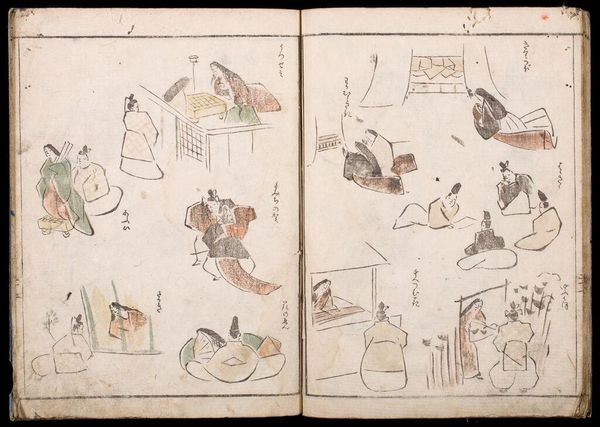 きりつぼ
はゝき木
夕かほ
わかむらさき
すへつむ花
うつせみ
もみちの賀
花のえん
あふひ
さかき